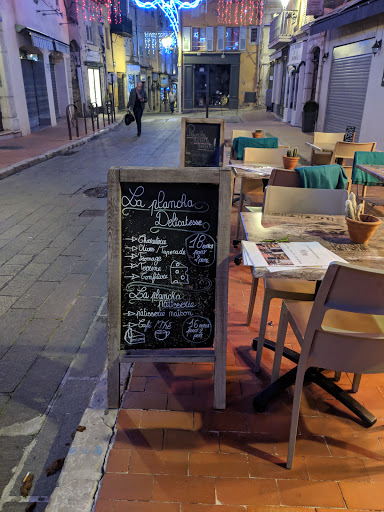 La plancha
Délicatesse
Charcuterie
Olives / Tapenade
Fromage
Terrine
Confiture
18 euros
pour
2 pers
La plancha
Pâtisserie
pâtisserie maison
Café / Thé
16 euros
pour
2 pers